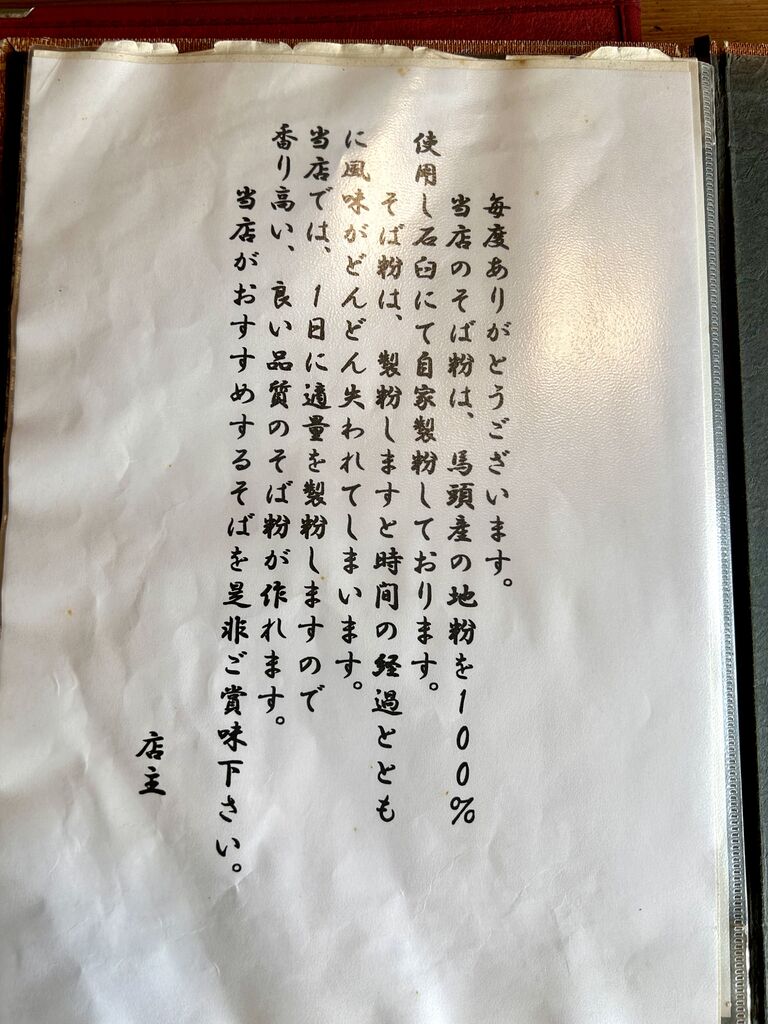 毎度ありがとうございます。
当店のそば粉は、馬頭産の地粉を100%
使用し石臼にて自家製粉しております。
そば粉は、製粉しますと時間の経過ととも
に風味がどんどん失われてしまいます。
当店では、1日に適量を製粉しますので
香り高い、良い品質のそば粉が作れます。
当店がおすすめするそばを是非ご賞味下さい。
店主